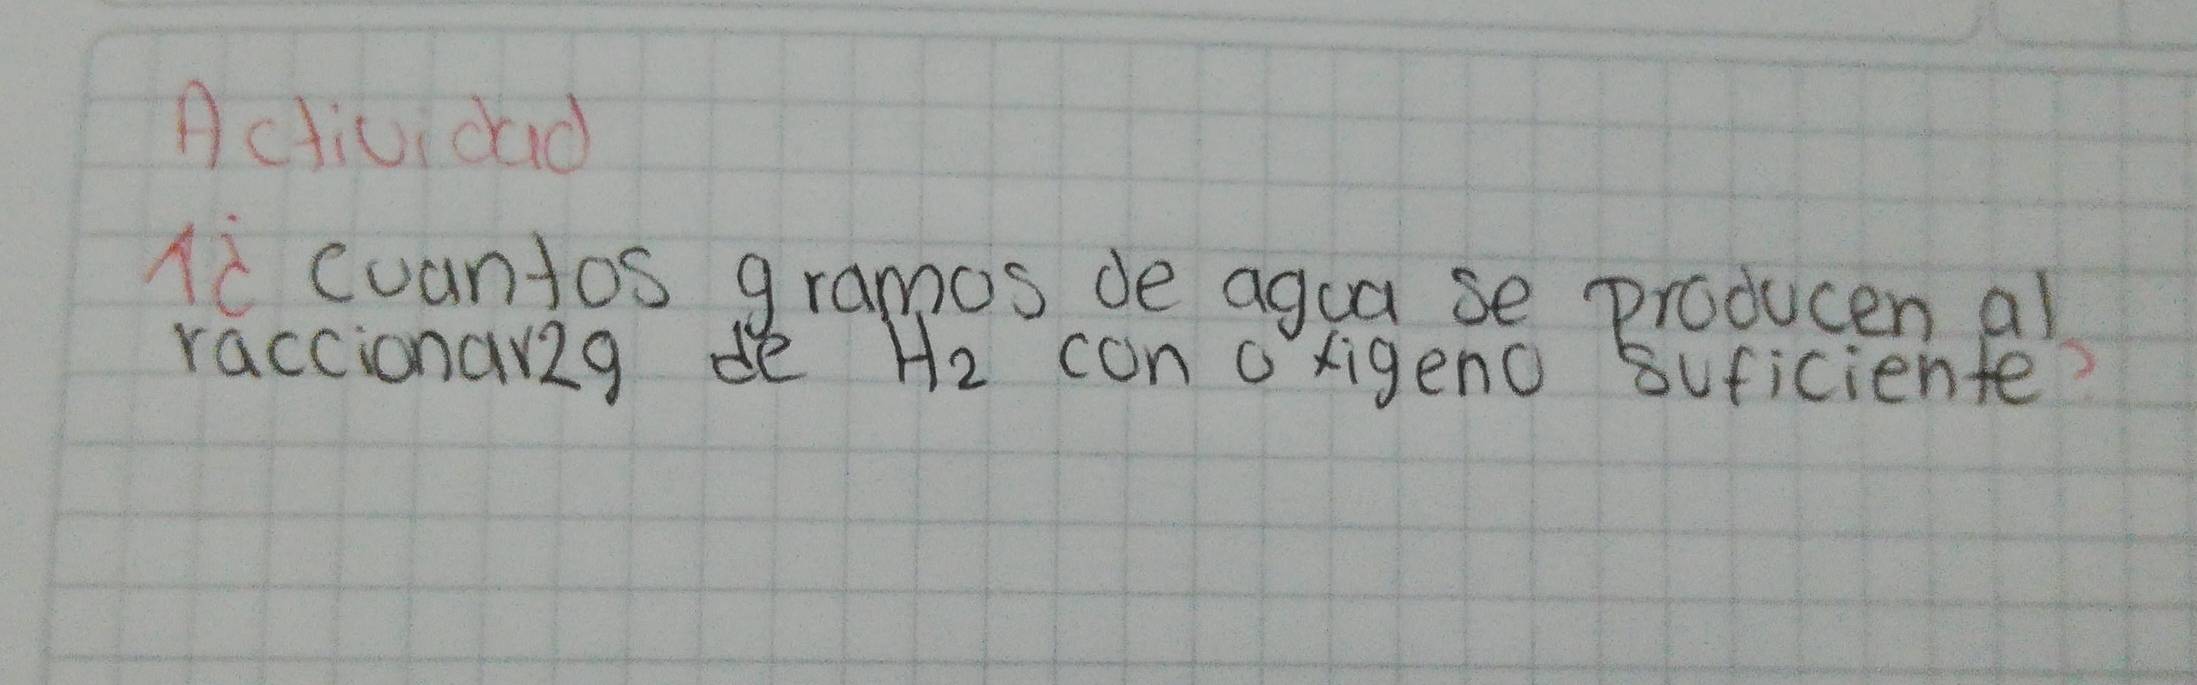 Actividad
1¿ cuantos gramos de agua se producen al
raccionar2g de H2 con oxigeno suficiente?